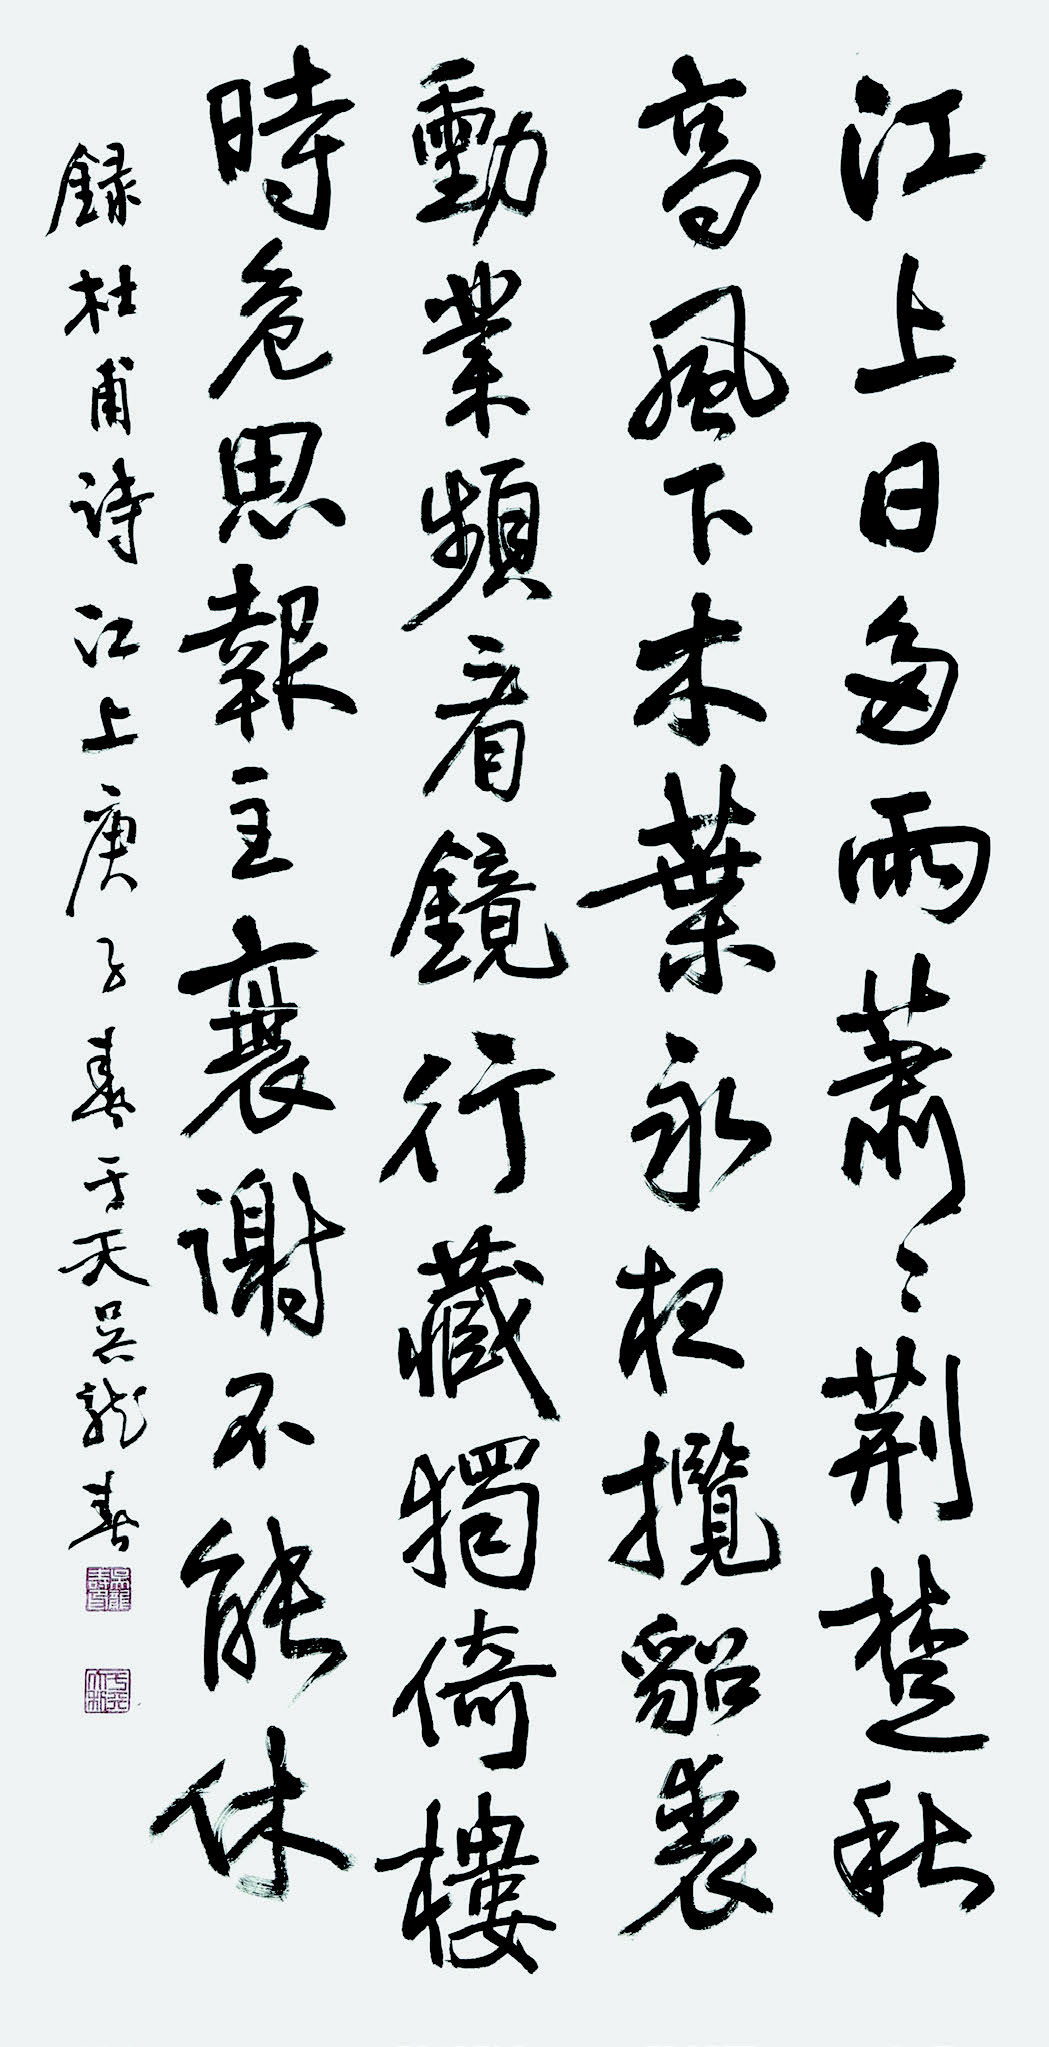 江上日多雨蕭〻荆楚秋
高風下木葉永夜攬貂裘
勳業頻看鏡行藏獨倚樓
時危思報主衰謝不能休
録杜甫诗江上庚子春于天吴龍春